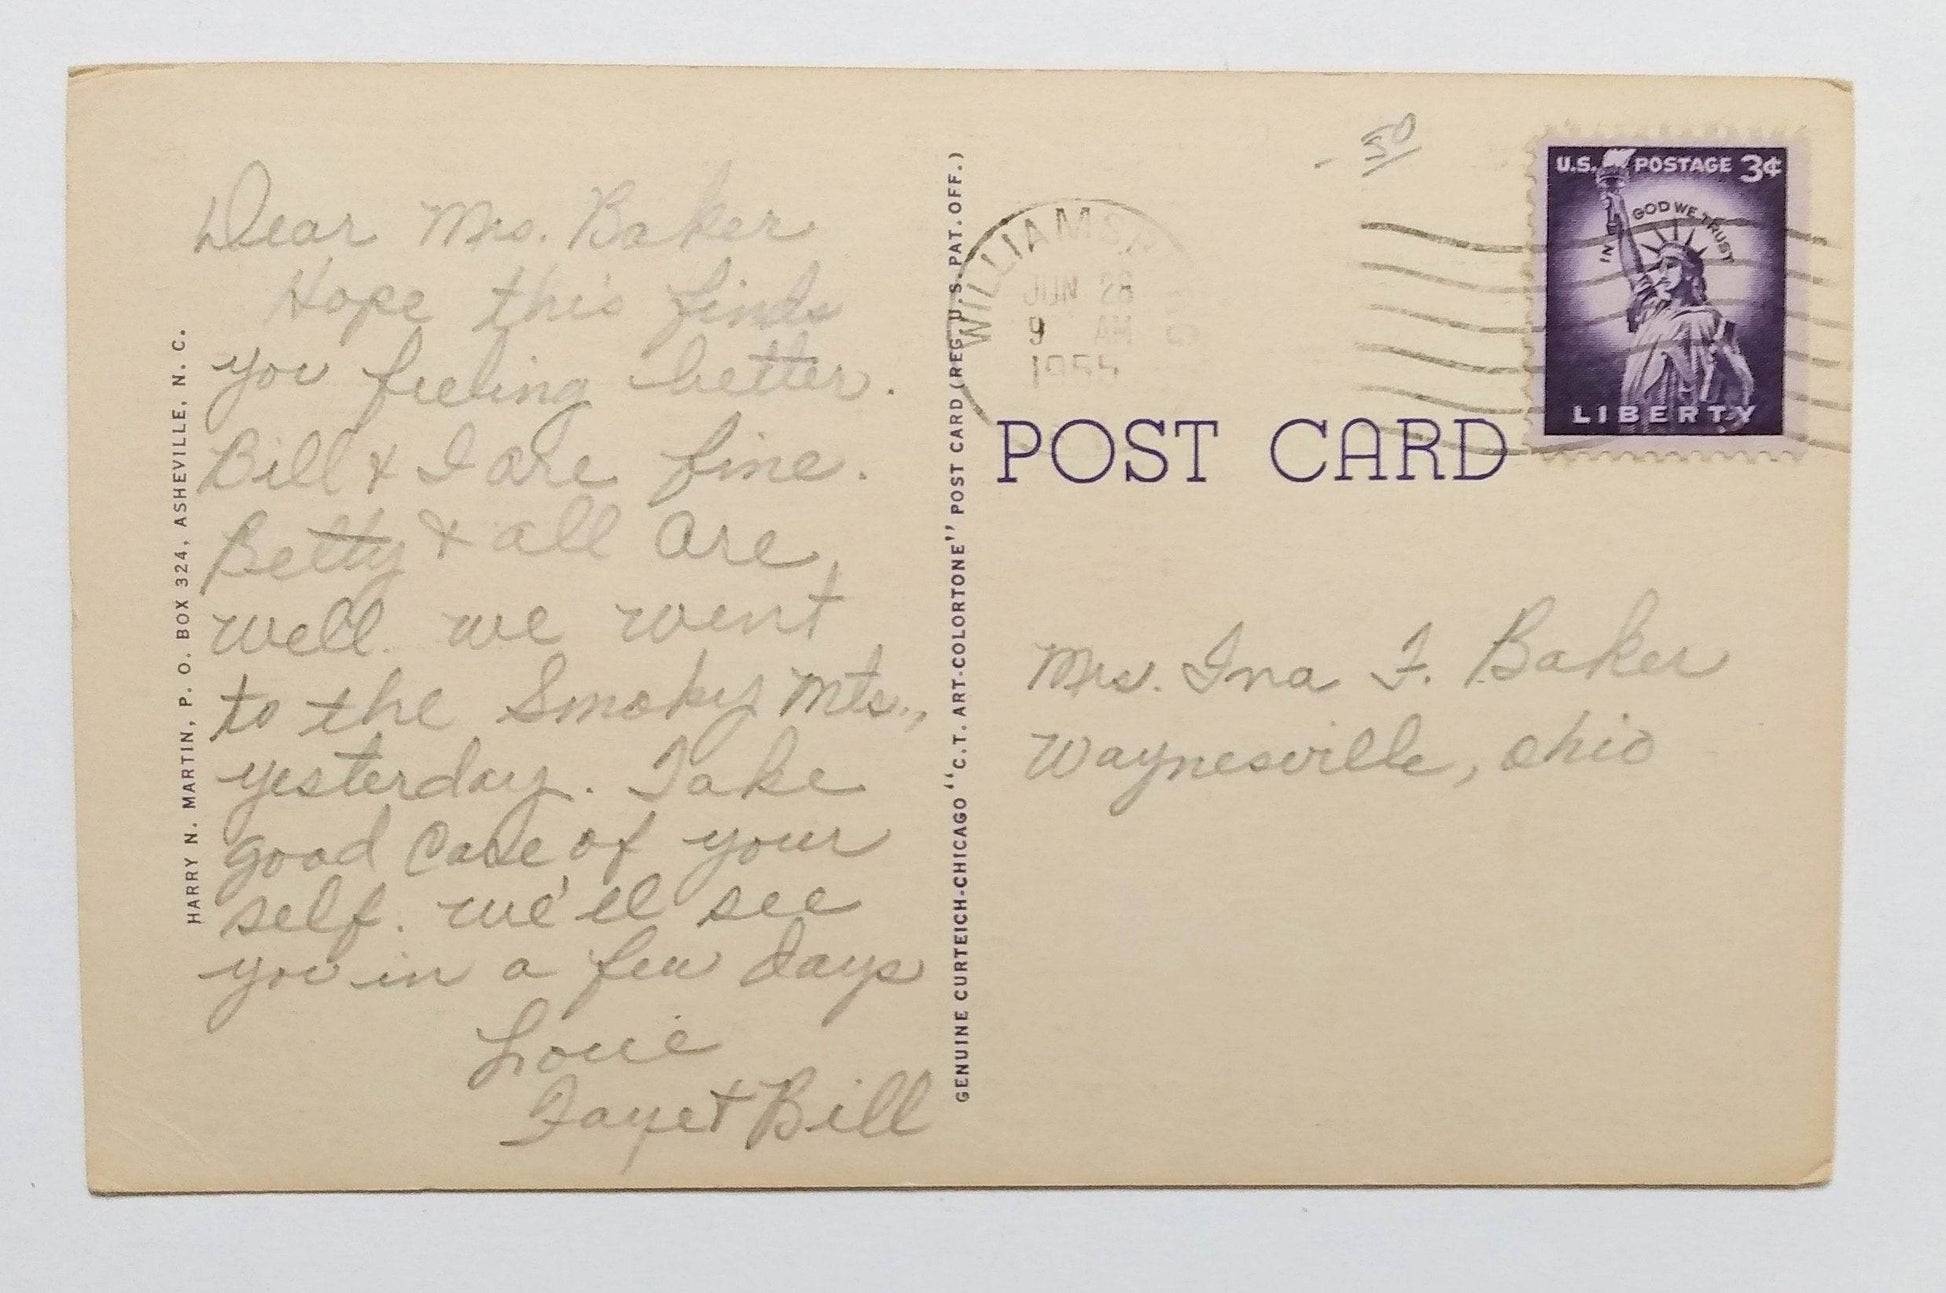 Dear Mrs. Baker
Hope this finds
you feeling better.
Bill & I are fine.
Betty & all are
well. we went
to the Smoky Mts.,
yesterday. Take
good care of your
self. we'll see
you in a few days
Love
Faye + Bill
HARRY N. MARTIN, P. O. BOX 324, ASHEVILLE, N. C.
GENUINE CURTEICH-CHICAGO "C.T. ART-COLORTONE" POST CARD (REG. U.S. PAT. OFF.)
- 50
U.S. POSTAGE 3¢
IN GOD WE TRUST
LIBERTY
JUN 28
9 AM
POST CARD
Mrs. Ina F. Baker
Waynesville, Ohio